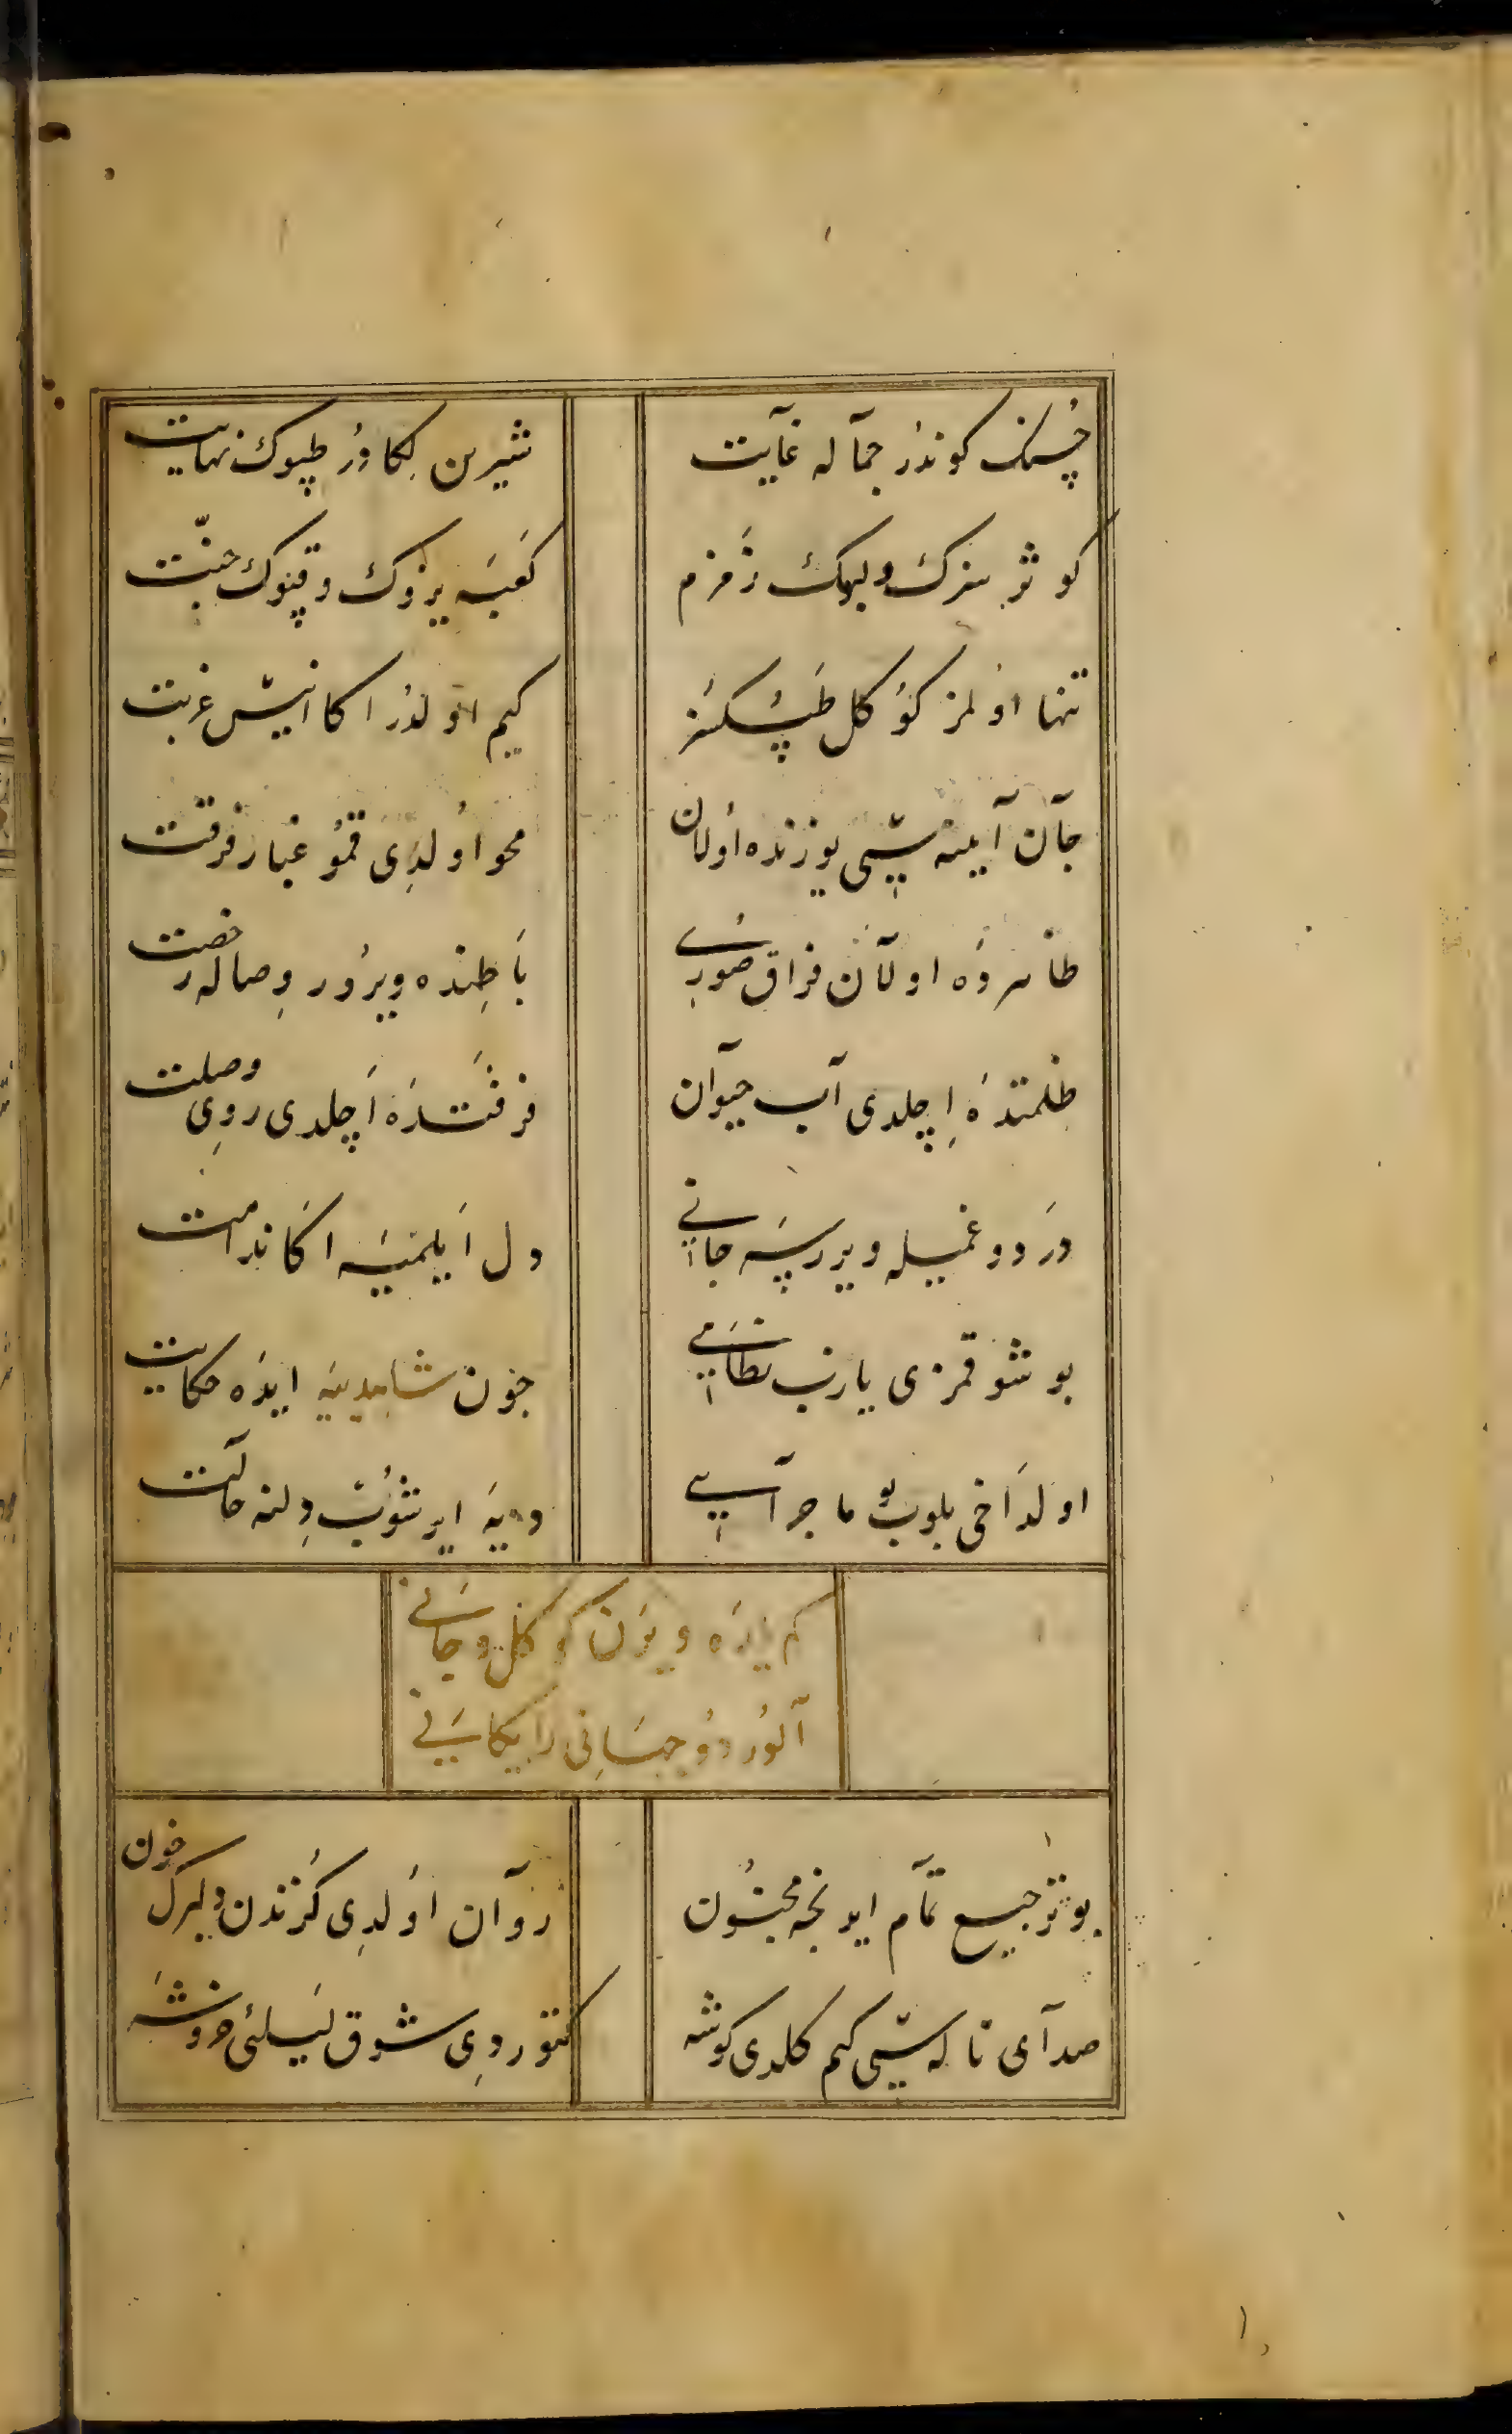 حُسنک کوندُر جمآله غآیت
شیرین لبکا دُر طپوک نهایت
کوثر سزک ولبک زَمزم
کَعبَه یزوک و قپوک جنّت
تنها اوُلمز کوُکل طَپُکسُز
کیم اوُلدُر اکا انیس غربت
جآن آینه سی یوزنده اوُلان
محو اوُلدِی قمُو غبار فرقت
ظاهردَه اولآن فراق صُورِی
بَاطِنده ویرُور وِصاله رخصت
ظلمتدَه اِچلدی آب حیوآن
فرقَتدَه اَچلدی روِی وصلت
دَرد و غمیله ویررسَه جانی
دل اَیلمیَه اکَا ندامت
بو شوقمزی یارب نظامی
چون شاهدیَه ایدَه حکایت
اولدَاخی بلوب بو ماجرآیی
دیَه ایرشُوب دِلنه حآلت
کم یلدَه ویرَن کوکل و جانی
آلوُر دوُ جهَانِی رایکاَنی
بو ترجیع تمآم ایدنجه مجنُون
روآن اوُلدِی کُزندن دیلرک خون
صدآی ناله سی کیم کلدی کوشه
کتوردِی شوق لیلئی خروشَه